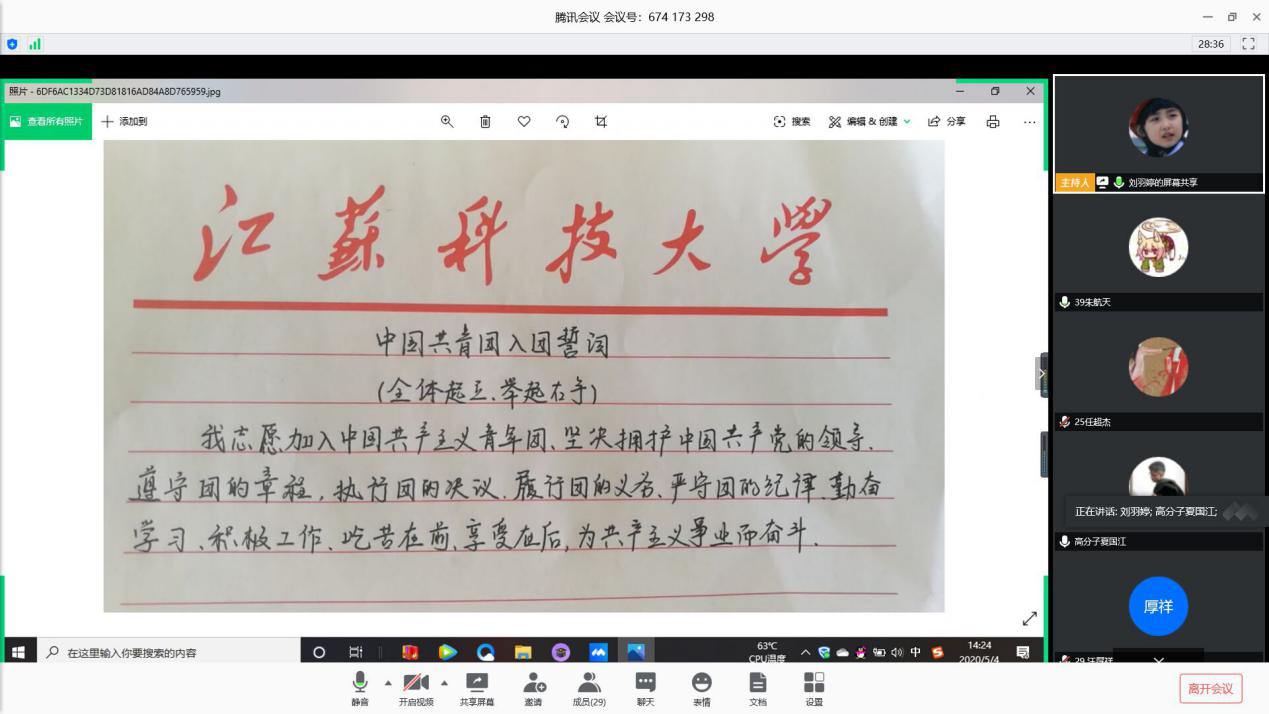 腾讯会议 会议号：674 173 298
28:36
照片 - 6DF6AC1334D73D81816AD84A8D765959.jpg
查看所有照片
添加到
搜索
编辑 & 创建
分享
江苏科技大学
中国共青团入团誓词
(全体起立、举起右手)
我志愿加入中国共产主义青年团、坚决拥护中国共产党的领导、
遵守团的章程，执行团的决议、履行团的义务、严守团的纪律、勤奋
学习、积极工作、吃苦在前、享受在后，为共产主义事业而奋斗.
主持人
刘羽婷的屏幕共享
39朱航天
25任超杰
正在讲话: 刘羽婷; 高分子夏国江;
高分子夏国江
厚祥
在这里输入你要搜索的内容
63℃
CPU温度
中
14:24
2020/5/4
静音
开启视频
共享屏幕
邀请
成员(29)
聊天
表情
文档
设置
离开会议